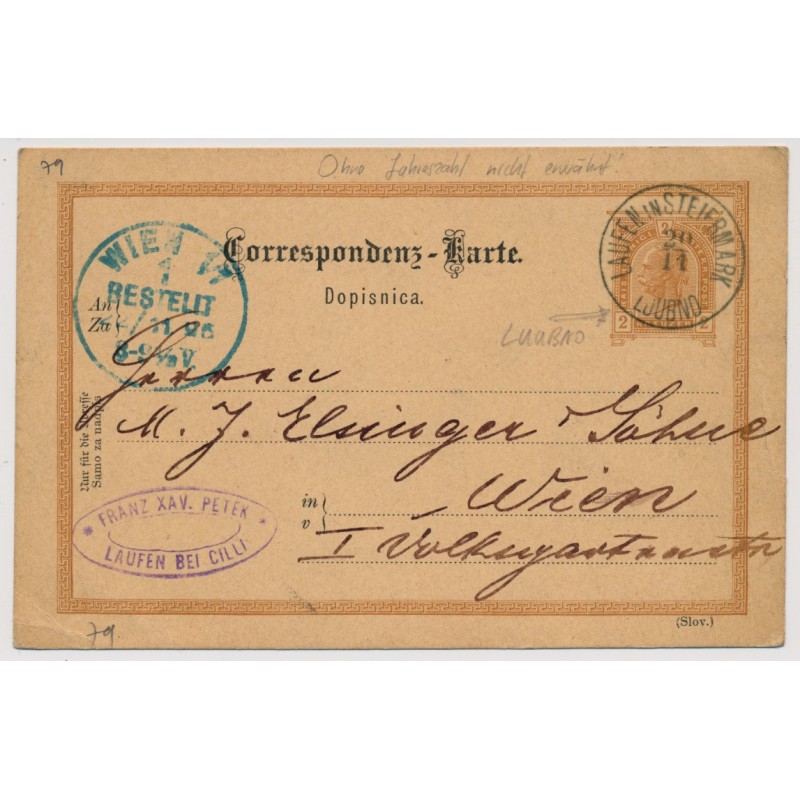 79
Ohne Jahreszahl nicht erwähnt!
LAUFEN IN STEIERMARK
20
11
LJUBNO
2 2
WIEN
1
BESTELLT
11 95
8-9½V
Correspondenz-Karte.
Dopisnica.
An
Za
LJUBNO
Herren
M. J. Elsinger & Söhne
in
v
Wien
I Volksgartenstr
Nur für die Adresse
Samo za nadpis
* FRANZ XAV. PETEK *
LAUFEN BEI CILLI
79.
(Slov.)